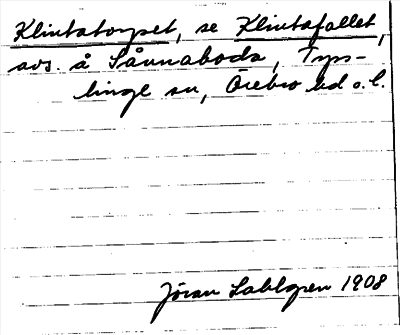 Klintatorpet, se Klintafallet,
avs. å Sånnaboda, Tys-
linge sn, Örebro hd o. l.
Jöran Sahlgren 1908